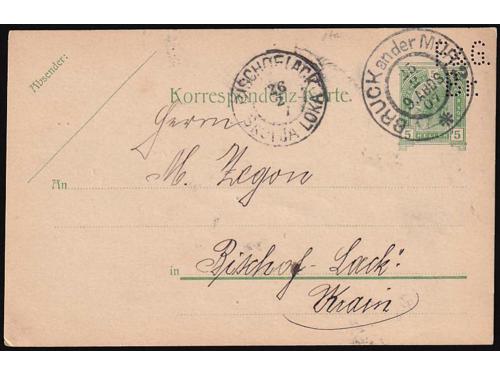 Absender:
Korrespondenz-Karte.
BISCHOFLACK
26
ŠKOFJA LOKA
BRUCK an der MUR
5 5
Herrn
An M. Zegon
in Bischof-Lack
Krain